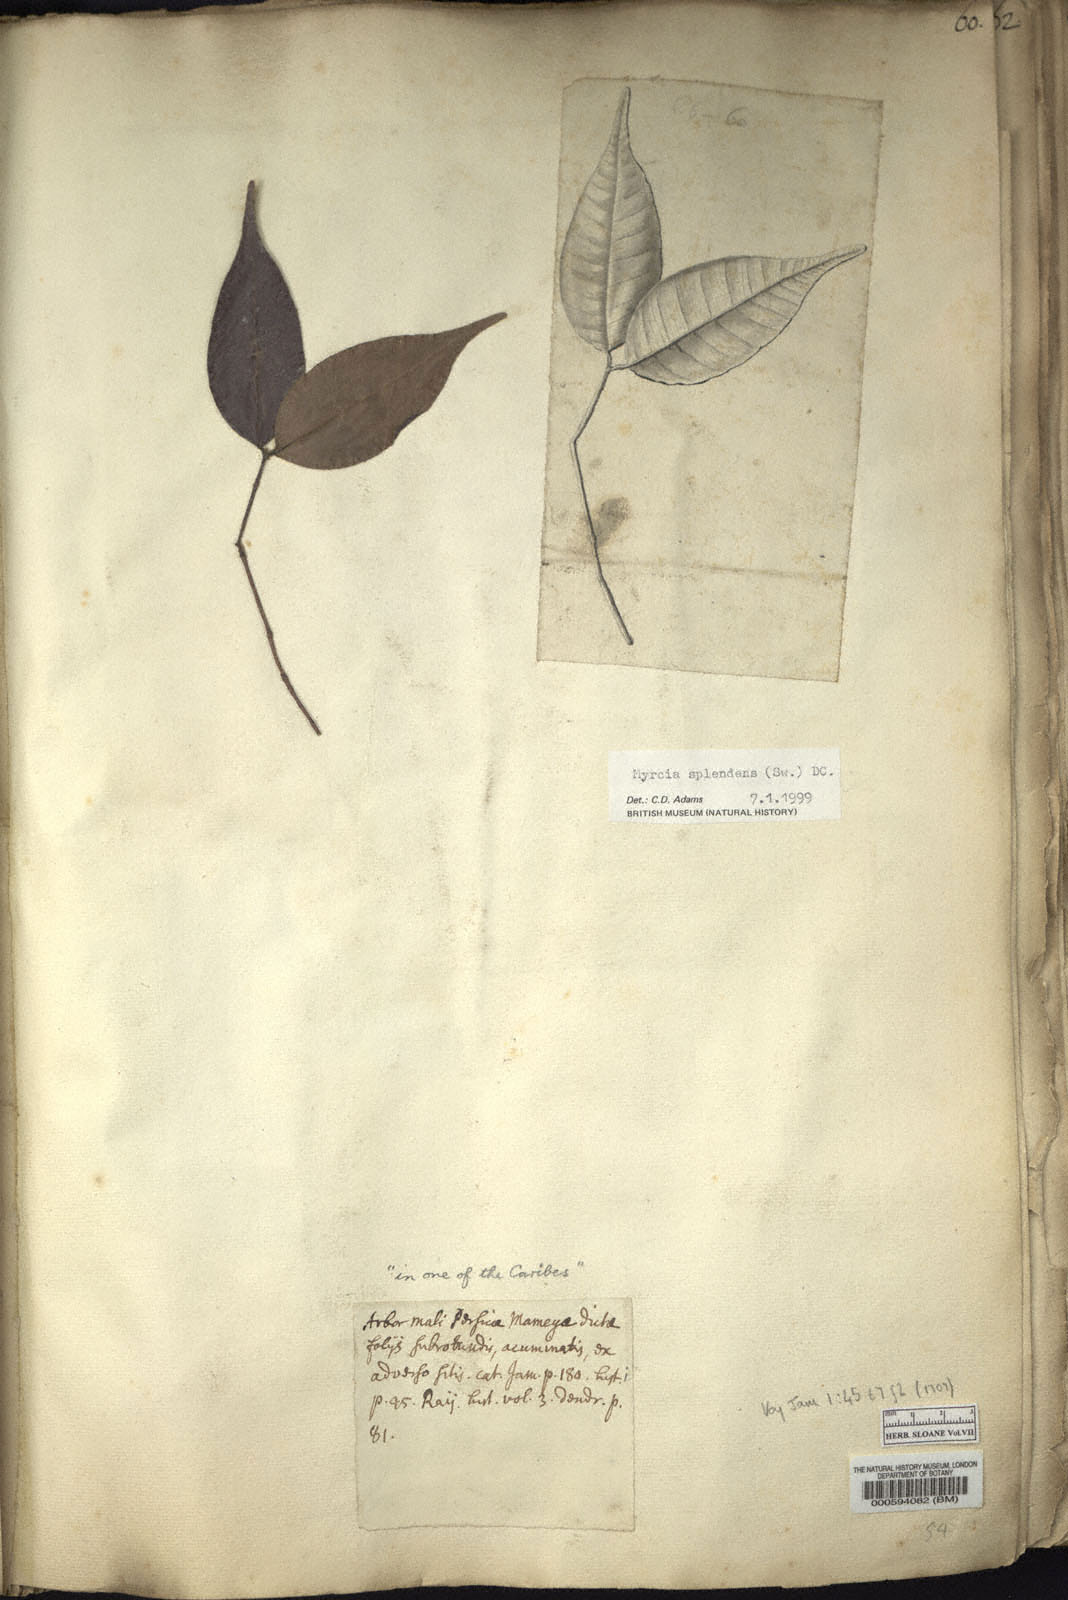 60. 62
Myrcia splendens (Sw.) DC.
Det.: C.D. Adams 7.1.1999
BRITISH MUSEUM (NATURAL HISTORY)
"in one of the Caribes"
Arbor mali Persicæ Mameyæ dictæ
folijs subrotundis, acuminatis, ex
adverso sitis. cat. Jam. p. 180. hist. i
p. 95. Raij. hist. vol. 3. dendr. p.
81.
Voy Jam 1:45 t 7 f 2 (1707)
HERB. SLOANE Vol.VII
THE NATURAL HISTORY MUSEUM, LONDON
DEPARTMENT OF BOTANY
000594082 (BM)
54